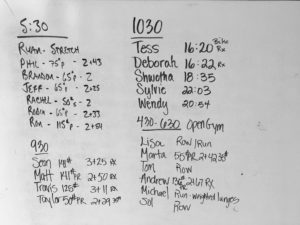 5:30
Ryan - Stretch
Phil - 75#p - 2+43
Brandon - 65#p - 2
Jeff - 65#p - 2+25
Rachel - 50#s - 2
Robin - 65#p - 2+33
Ron - 115#p - 2+54
930
Sean 3+25 RX
Matt 2+50 RX
Travis 125# 3+11 RX
Taylor 50#PR
1030
Tess 16:20 Bike RX
Deborah 16:22 RX
Shwetha 18:35
Sylvie 22:03
Wendy 20:54
430-630 Open Gym
Lisa Row/Run
Marta 55#PR
Tom Row
Andrew RX
Michael Run - weighted lunges
Sol Row